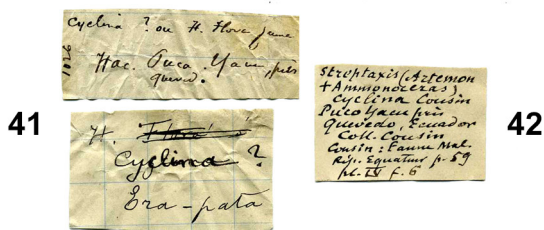 41
Cyclina ? ou H. Flora juna
1026
Hac. Puca Yacu, près
Quevedo.
H.
Cyclina ?
Era-pata
Streptaxis (Artemon
+ Ammonoceras)
Cyclina Cousin
Puco Yacu près
Quevedo, Ecuador
Coll. Cousin
Cousin: Faune Mal.
Rép. Equateur p. 59
pl. IV f. 6
42